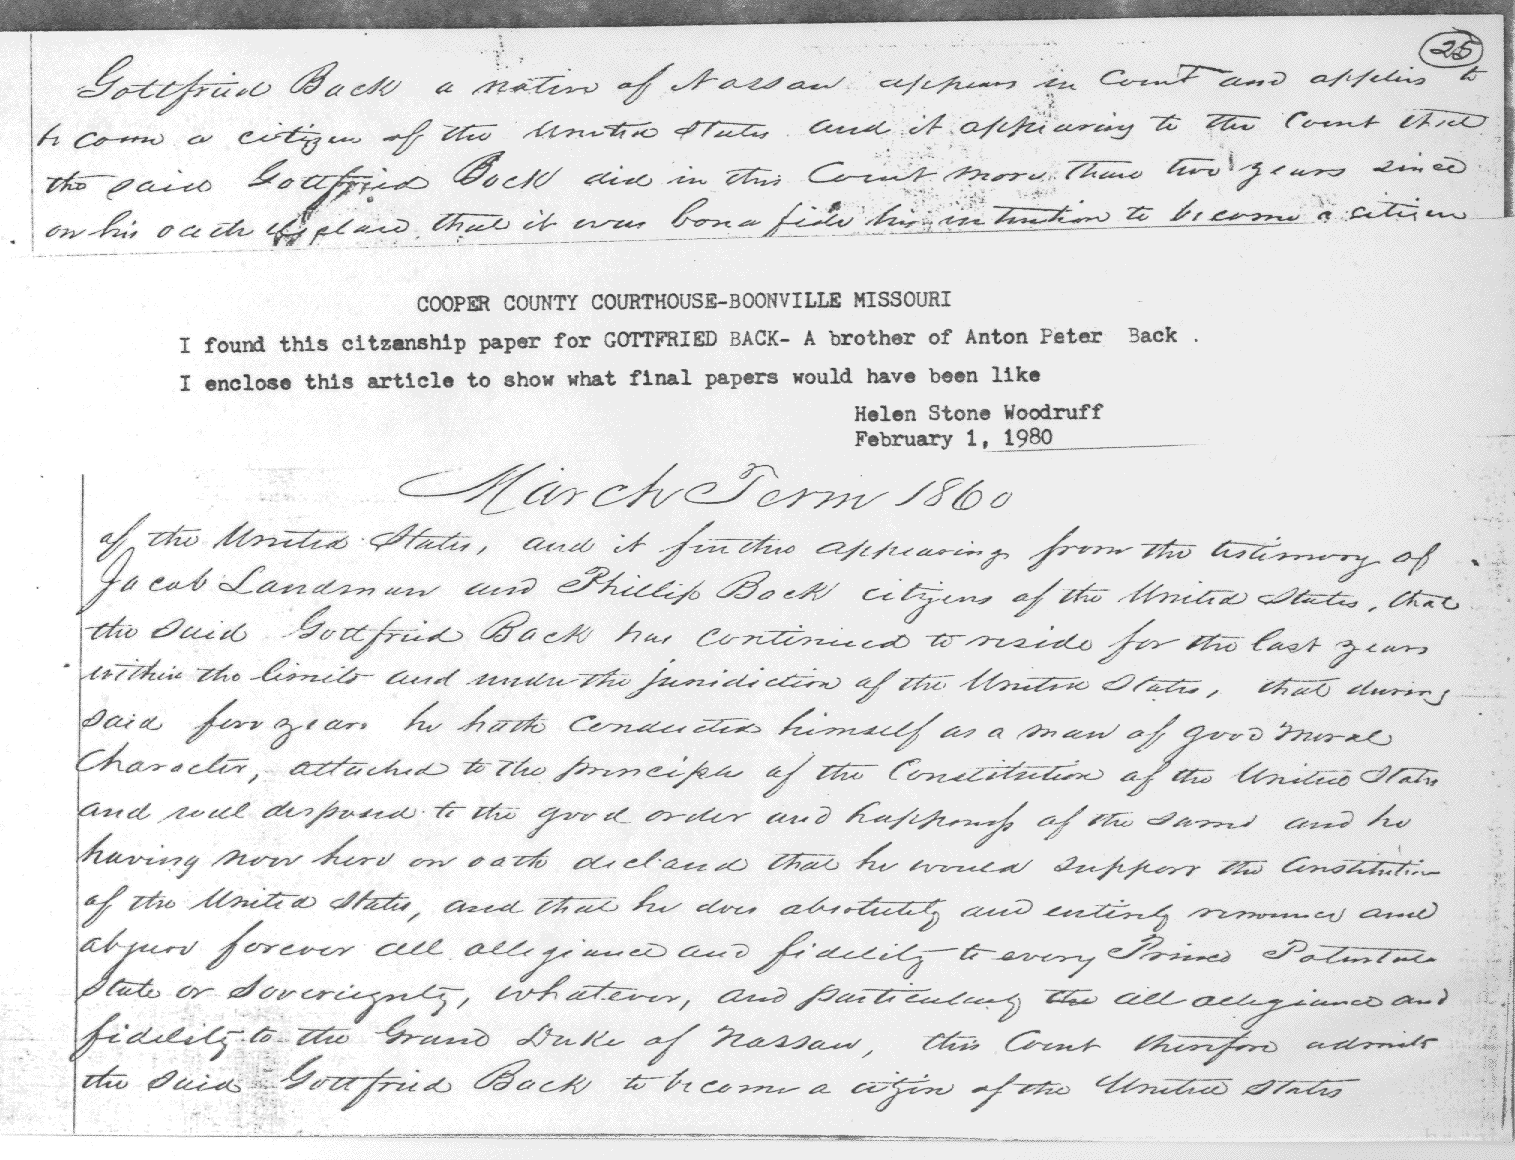 25
Gottfried Back a native of Nassau appears in Court and applies to
become a citizen of the United States and it appearing to the Court that
the said Gottfried Back did in this Court more than two years since
on his oath declare that it was bona fide his intention to become a citizen
COOPER COUNTY COURTHOUSE-BOONVILLE MISSOURI
I found this citzanship paper for GOTTFRIED BACK- A brother of Anton Peter Back .
I enclose this article to show what final papers would have been like
Helen Stone Woodruff
February 1, 1980
March Term 1860
of the United States, and it further appearing from the testimony of
Jacob Landman and Phillip Back citizens of the United States, that
the said Gottfried Back has continued to reside for the last years
within the limits and under the jurisdiction of the United States, that during
said five years he hath conducted himself as a man of good moral
Character, attached to the principles of the Constitution of the United States
and well disposed to the good order and happiness of the same and he
having now here on oath declared that he would support the Constitution
of the United States, and that he does absolutely and entirely renounce and
abjure forever all allegiance and fidelity to every Prince Potentate
State or Sovereignty, whatever, and particularly the all allegiance and
fidelity to the Grand Duke of Nassau, this Court therefore admits
the said Gottfried Back to become a citizen of the United States